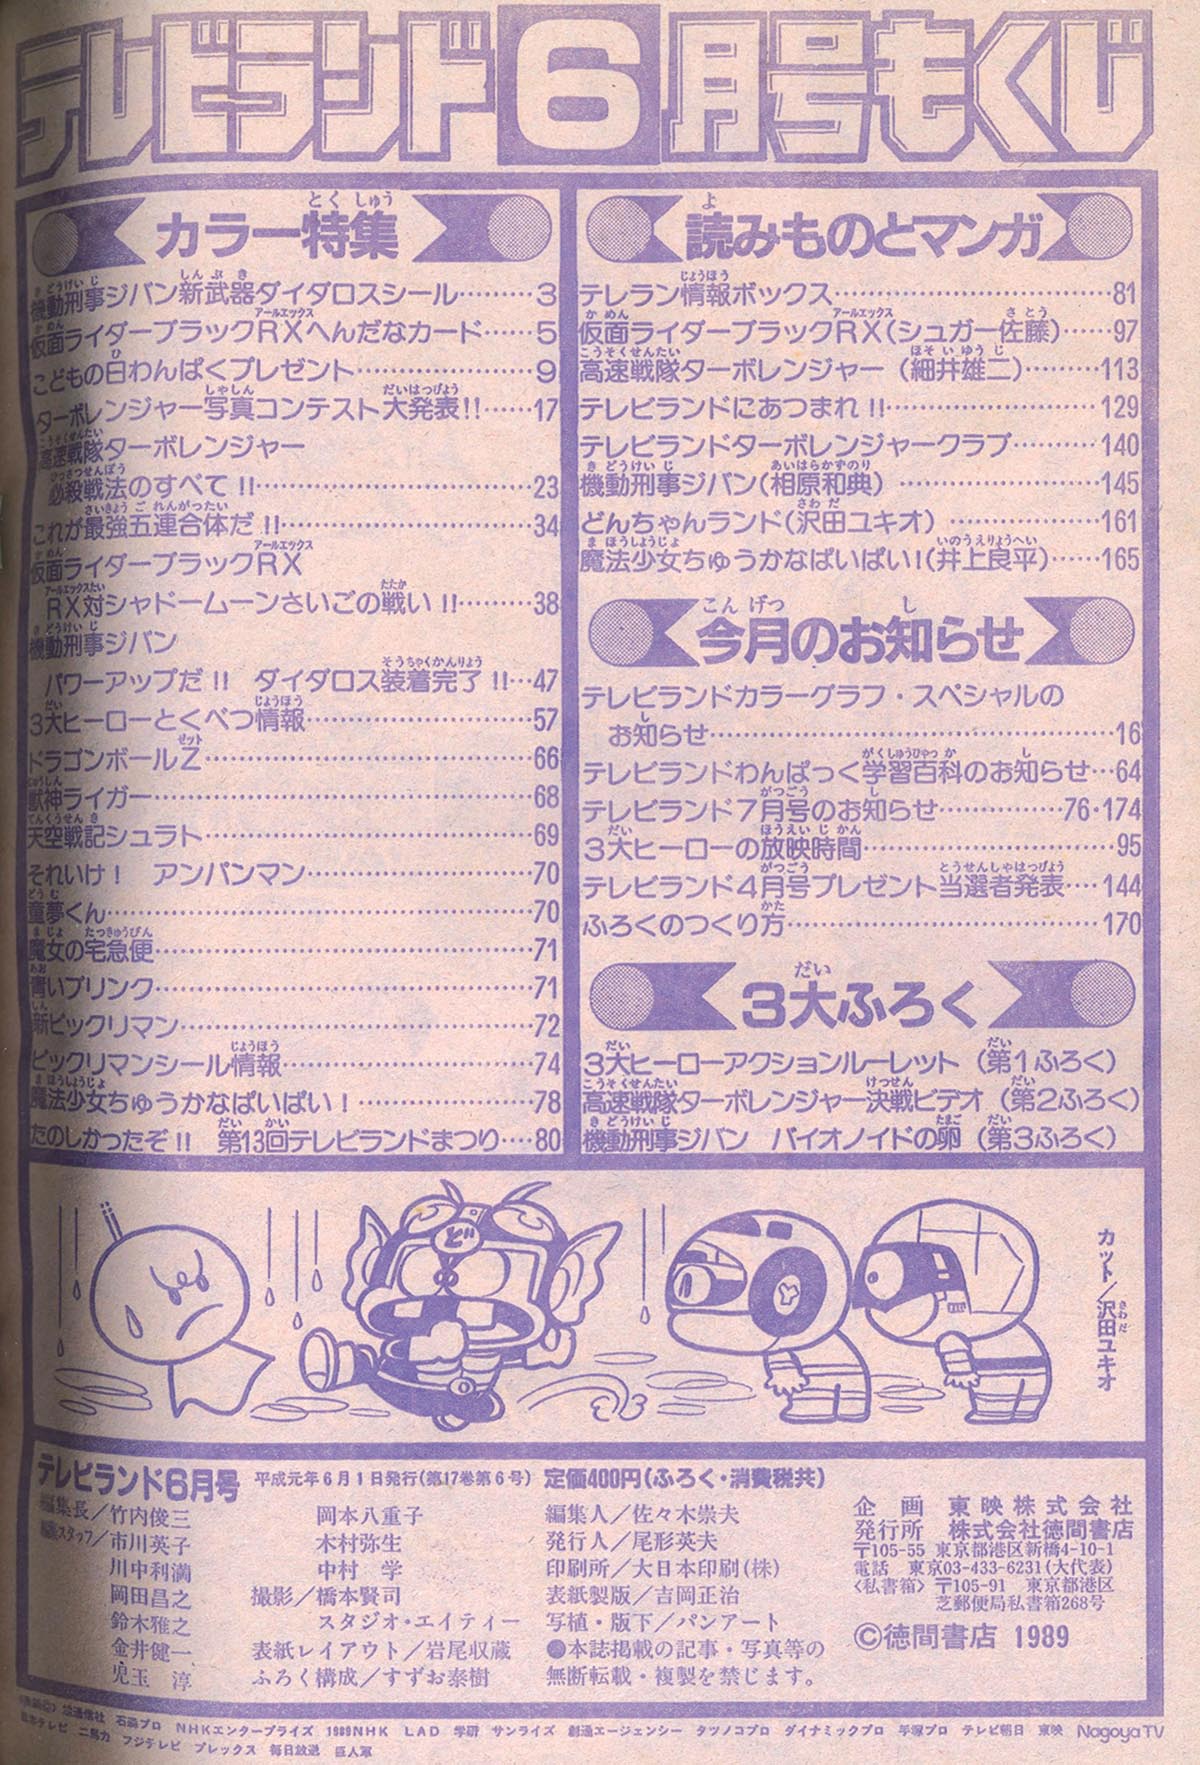 テレビランド6月号もくじ
カラー特集
機動刑事ジバン新武器ダイダロスシール………3
仮面ライダーブラックRXへんだなカード……5
こどもの日わんぱくプレゼント………………9
ターボレンジャー写真コンテスト大発表!!……17
高速戦隊ターボレンジャー
必殺戦法のすべて!!………………………23
これが最強五連合体だ!!……………………34
仮面ライダーブラックRX
RX対シャドームーンさいごの戦い!!………38
機動刑事ジバン
パワーアップだ!! ダイダロス装着完了!!…47
3大ヒーローとくべつ情報……………………57
ドラゴンボールZ………………………………66
獣神ライガー……………………………………68
天空戦記シュラト………………………………69
それいけ! アンパンマン……………………70
童夢くん…………………………………………70
魔女の宅急便……………………………………71
青いブリンク……………………………………71
新ビックリマン…………………………………72
ビックリマンシール情報………………………74
魔法少女ちゅうかなぱいぱい!………………78
たのしかったぞ!! 第13回テレビランドまつり…80
読みものとマンガ
テレラン情報ボックス…………………………81
仮面ライダーブラックRX(シュガー佐藤)……97
高速戦隊ターボレンジャー(細井雄二)………113
テレビランドにあつまれ!!…………………129
テレビランドターボレンジャークラブ………140
機動刑事ジバン(相原和典)…………………145
どんちゃんランド(沢田ユキオ)……………161
魔法少女ちゅうかなぱいぱい!(井上良平)……165
今月のお知らせ
テレビランドカラーグラフ・スペシャルの
お知らせ…………………………………………16
テレビランドわんぱっく学習百科のお知らせ…64
テレビランド7月号のお知らせ…………76・174
3大ヒーローの放映時間………………………95
テレビランド4月号プレゼント当選者発表……144
ふろくのつくり方……………………………170
3大ふろく
3大ヒーローアクションルーレット(第1ふろく)
高速戦隊ターボレンジャー決戦ビデオ(第2ふろく)
機動刑事ジバン バイオノイドの卵(第3ふろく)
ど
Y
カット/沢田ユキオ
テレビランド6月号 平成元年6月1日発行(第17巻第6号) 定価400円(ふろく・消費税共)
編集長/竹内俊三
編集スタッフ/市川英子
川中利満
岡田昌之
鈴木雅之
金井健一
児玉 淳
岡本八重子
木村弥生
中村 学
撮影/橋本賢司
スタジオ・エイティー
表紙レイアウト/岩尾収蔵
ふろく構成/すずお泰樹
編集人/佐々木崇夫
発行人/尾形英夫
印刷所/大日本印刷(株)
表紙製版/吉岡正治
写植・版下/パンアート
●本誌掲載の記事・写真等の
無断転載・複製を禁じます。
企画 東映株式会社
発行所 株式会社徳間書店
〒105-55 東京都港区新橋4-10-1
電話 東京03-433-6231(大代表)
〈私書箱〉〒105-91 東京都港区
芝郵便局私書箱268号
©徳間書店 1989
石森プロ NHKエンタープライズ 1989NHK LAD 学研 サンライズ 創通エージェンシー タツノコプロ ダイナミックプロ 手塚プロ テレビ朝日 東映 Nagoya TV
日本テレビ 二馬力 フジテレビ プレックス 毎日放送 巨人軍